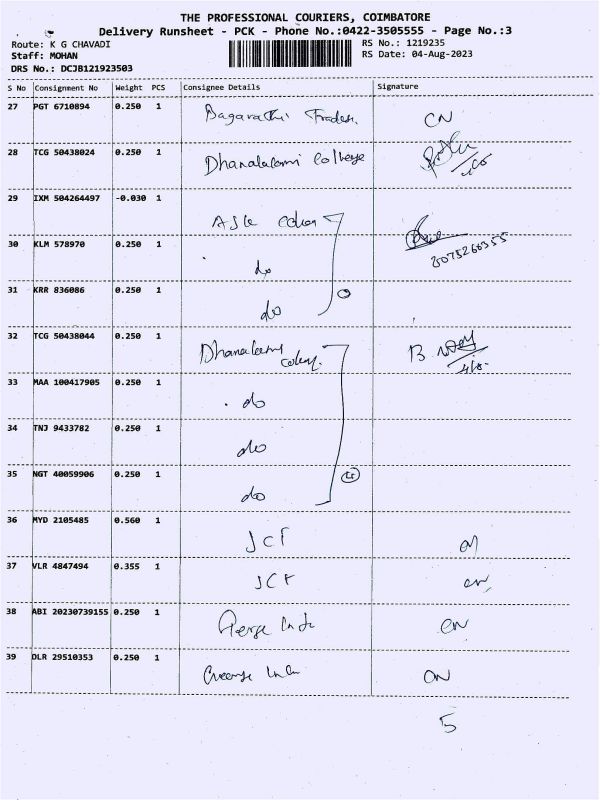 THE PROFESSIONAL COURIERS, COIMBATORE
Delivery Runsheet - PCK - Phone No.:0422-3505555 - Page No.:3
Route: K G CHAVADI RS No.: 1219235
Staff: MOHAN RS Date: 04-Aug-2023
DRS No.: DCJB121923503
S No Consignment No Weight PCS Consignee Details Signature
27 PGT 6710894 0.250 1 CN
28 TCG 50438024 0.250 1 Dhanalaxmi College
29 IXM 504264497 -0.030 1
30 KLM 578970 0.250 1 do
31 KRR 836086 0.250 1 do
32 TCG 50438044 0.250 1 Dhanalaxmi B.
33 MAA 100417905 0.250 1 do
34 TNJ 9433782 0.250 1 do
35 NGT 40059906 0.250 1 do
36 MYD 2105485 0.560 1 JCF
37 VLR 4847494 0.355 1 JCF
38 ABI 20230739155 0.250 1 CN
39 DLR 29510353 0.250 1 ON
5